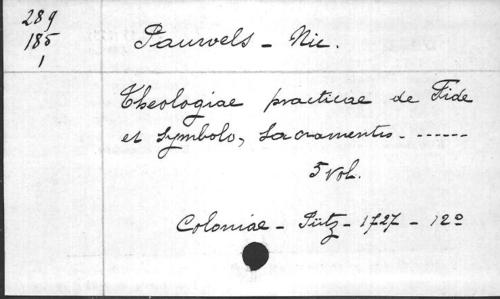 289
185
1
Pauwels - Nic.
Theologiae practicae de Fide
et Symbolo, Sacramentis. ------
5 vol.
Coloniae - Pütz - 1727 - 12º